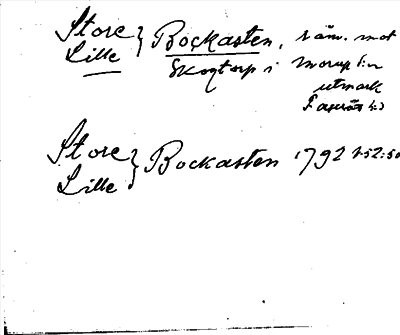 Store
Lille } Bockasten, räm. mot
Skogtorp i Morup s:n
utmark
Store
Lille } Bockasten 1792 1:52:50